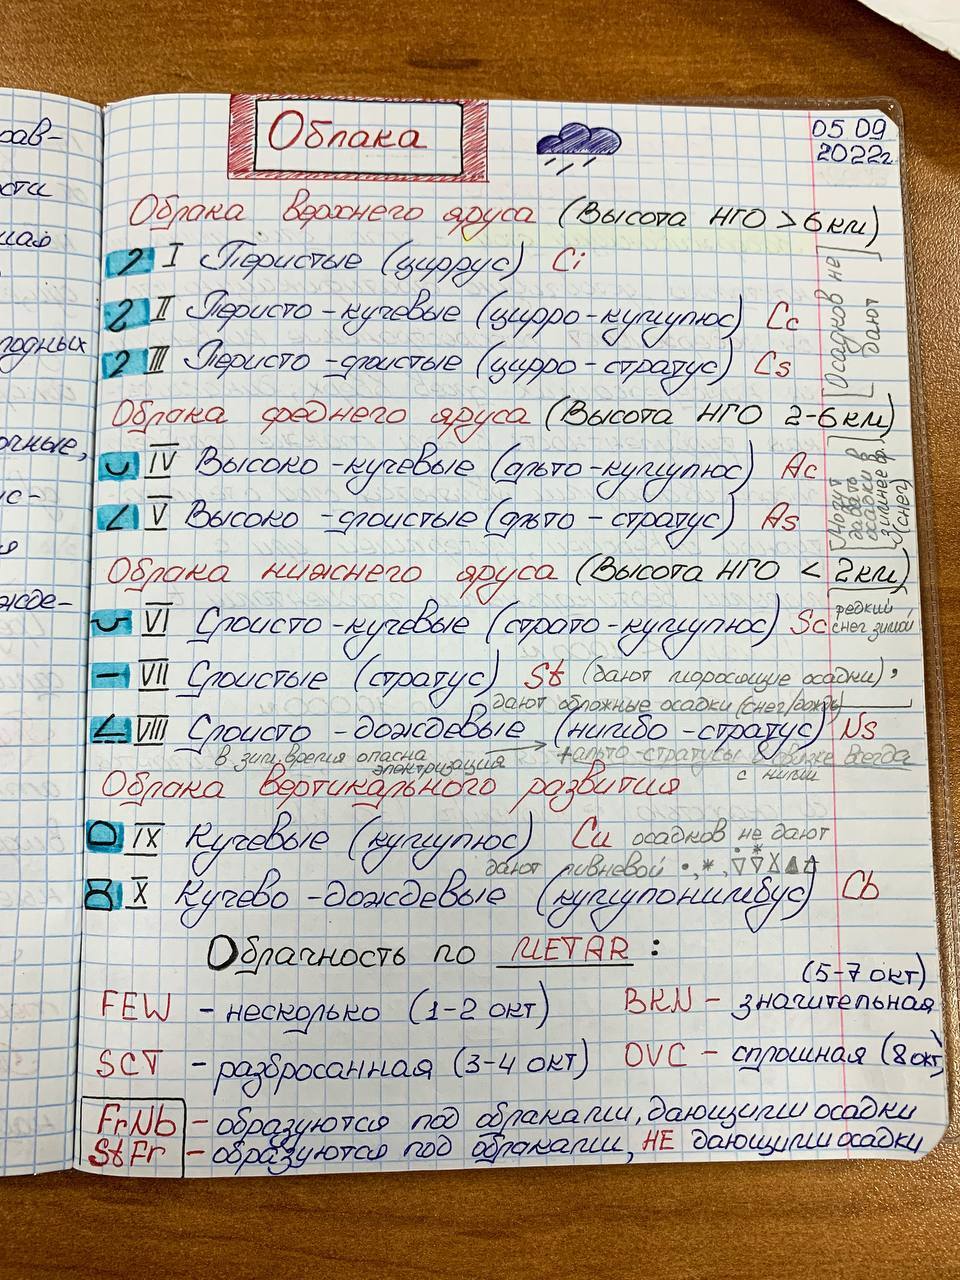 Облака
05 09
2022г.
Облака верхнего яруса (Высота НГО > 6 км)
I Перистые (циррус) Ci
II Перисто-кучевые (цирро-кумулюс) Cc
III Перисто-слоистые (цирро-стратус) Cs
Осадков не
дают
Облака среднего яруса (Высота НГО 2-6 км)
IV Высоко-кучевые (альто-кумулюс) Ac
V Высоко-слоистые (альто-стратус) As
Могут
давать
осадки в
зимнее вр.
(снег)
Облака нижнего яруса (Высота НГО < 2 км)
VI Слоисто-кучевые (страто-кумулюс) Sc
редкий
снег зимой
VII Слоистые (стратус) St (дают моросящие осадки)
дают обложные осадки (снег/дождь)
VIII Слоисто-дождевые (нимбо-стратус) Ns
В зим. время опасна
электризация
+альто-стратусы в связке всегда
с нимби
Облака вертикального развития
IX Кучевые (кумулюс) Cu осадков не дают
дают ливневой
X Кучево-дождевые (кумулонимбус) Cb
Облачность по METAR:
FEW - несколько (1-2 окт)
(5-7 окт)
BKN - значительная
SCT - разбросанная (3-4 окт)
OVC - сплошная (8 окт)
FrNb - образуются под облаками, дающими осадки
StFr - образуются под облаками, НЕ дающими осадки
рав-
ости
лодных
очные,
ис-
я
ожде-